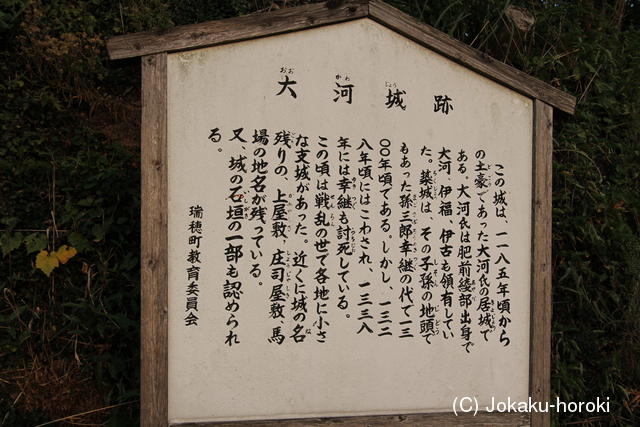 大河城跡
この城は、一一八五年頃から
の土豪であった大河氏の居城で
ある。大河氏は肥前綾部出身で
大河、伊福、伊古も領有してい
た。築城は、その子孫の地頭で
もあった孫三郎幸継の代で一三
〇〇年頃である。しかし、一三二
八年頃にはこわされ、一三三八
年には幸継も討死している。
この頃は戦乱の世で各地に小さ
な支城があった。近くに城の名
残りの、上屋敷、庄司屋敷、馬
場の地名が残っている。
又、城の石垣の一部も認められ
る。
瑞穂町教育委員会
(C) Jokaku-horoki